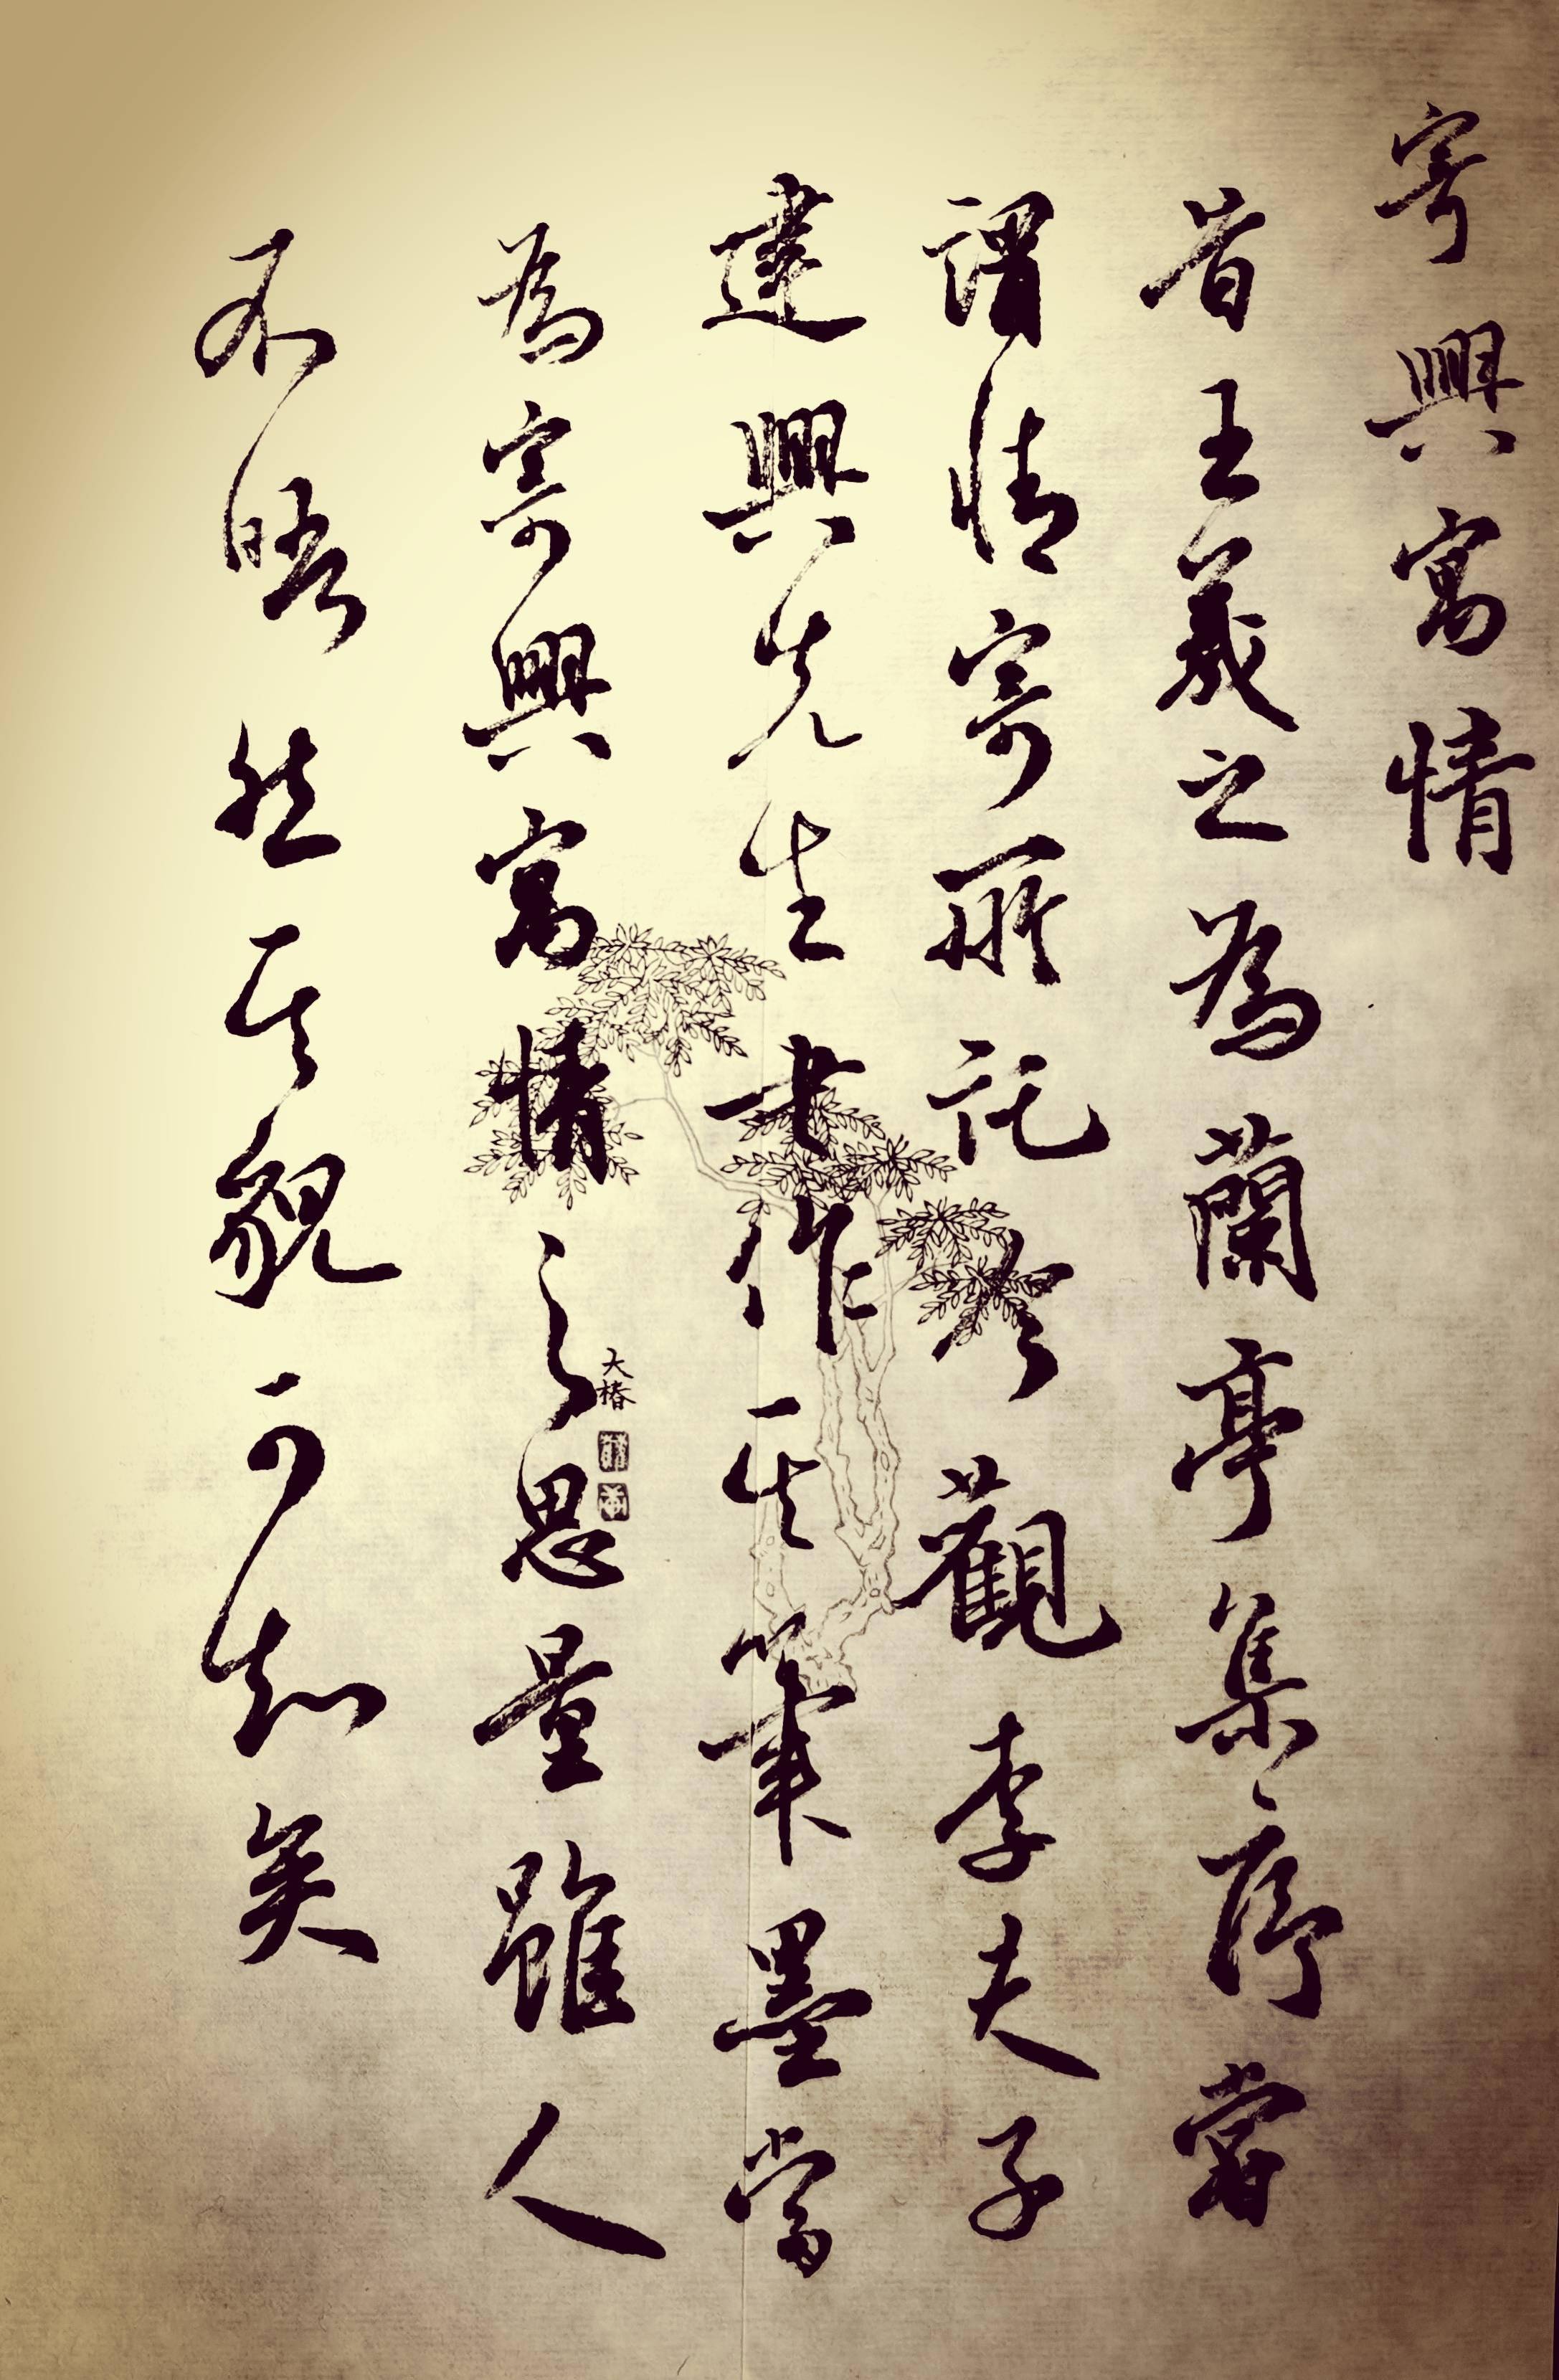 寄興寓情
昔王羲之為蘭亭集序嘗
謂情寄所託今觀李夫子
建興先生書作其筆墨當
為寄興寓情之思量雖人
不晤然其貌可知矣
大椿